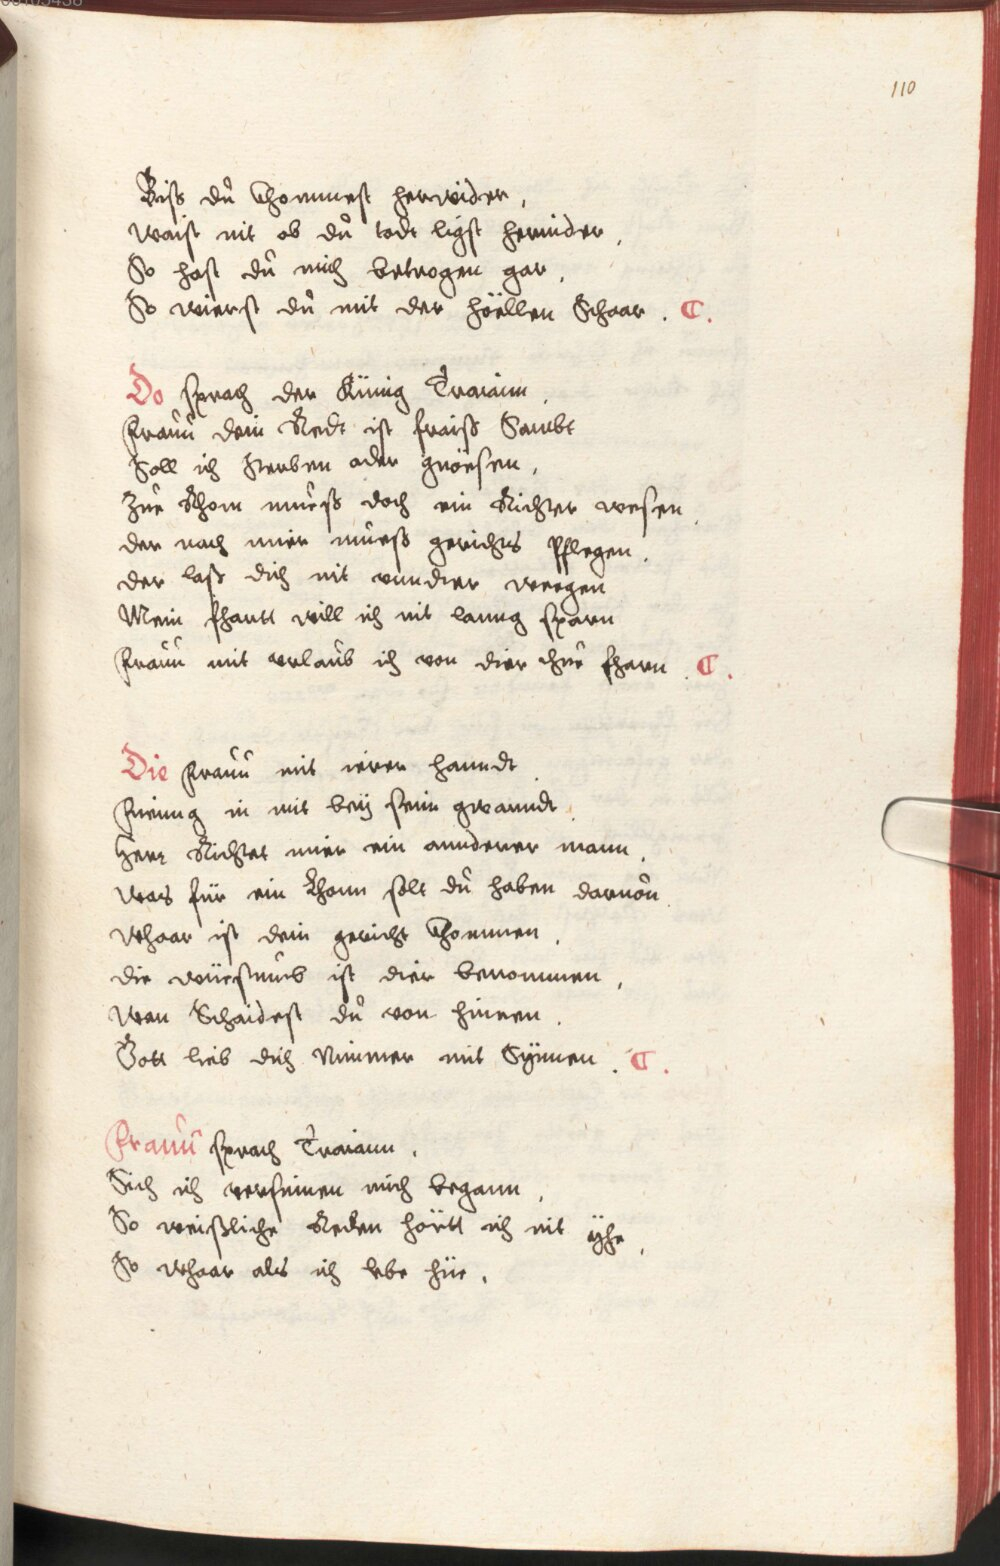 110
Biss dů khommest herwider,
Waist nit ob dů todt ligst hernider,
So hast dů mich betrogen gar,
So wierst dů mit der höellen Schaar. C.
Do sprach der Künig Traiann,
Frauů dein Redt ist fraiß Sambt
Soll ich Sterben oder gnöesen,
Zůe Rhom mueß doch ein Richter wesen,
der nach mier mueß gerichts Pflegen,
der laß dich nit vnndter weegen
Mein fhartt will ich nit lanng sparn
Frauů mit vrlaub ich von dier thue fharn. C.
Die Frauů mit irer hanndt,
Fieng in mit beÿ sein gwanndt,
Herr Richtet mier ein annderer mann,
Was für ein Lhonn solt dů haben daruon
Whaar ist dein gericht khommen,
die ist dier benommen,
Wan Schaidest dů von hinnen,
Gott lieb dich Nimmer mit Sÿnnen. C.
Frauů sprach Traiann,
Sich ich versinnen mich began,
So weißliche Reden hörtt ich nit ÿhe,
So Whaar als ich lebe hüe,